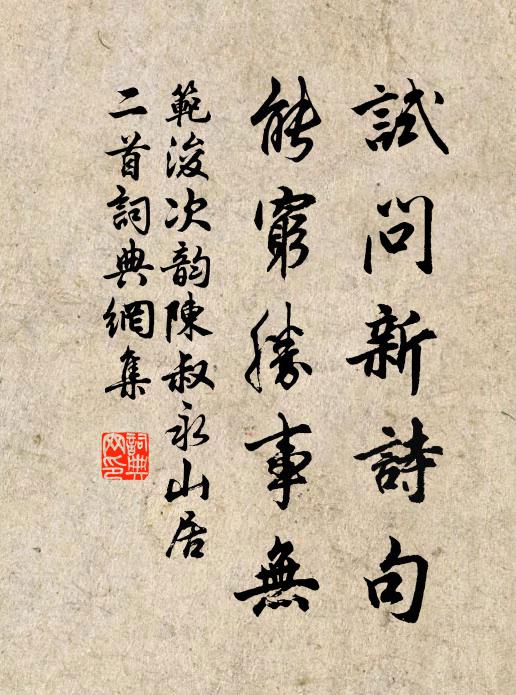 試問新詩句
能窮勝事無
範浚次韵陳叔永山居
二首詞典網集
詞典网印